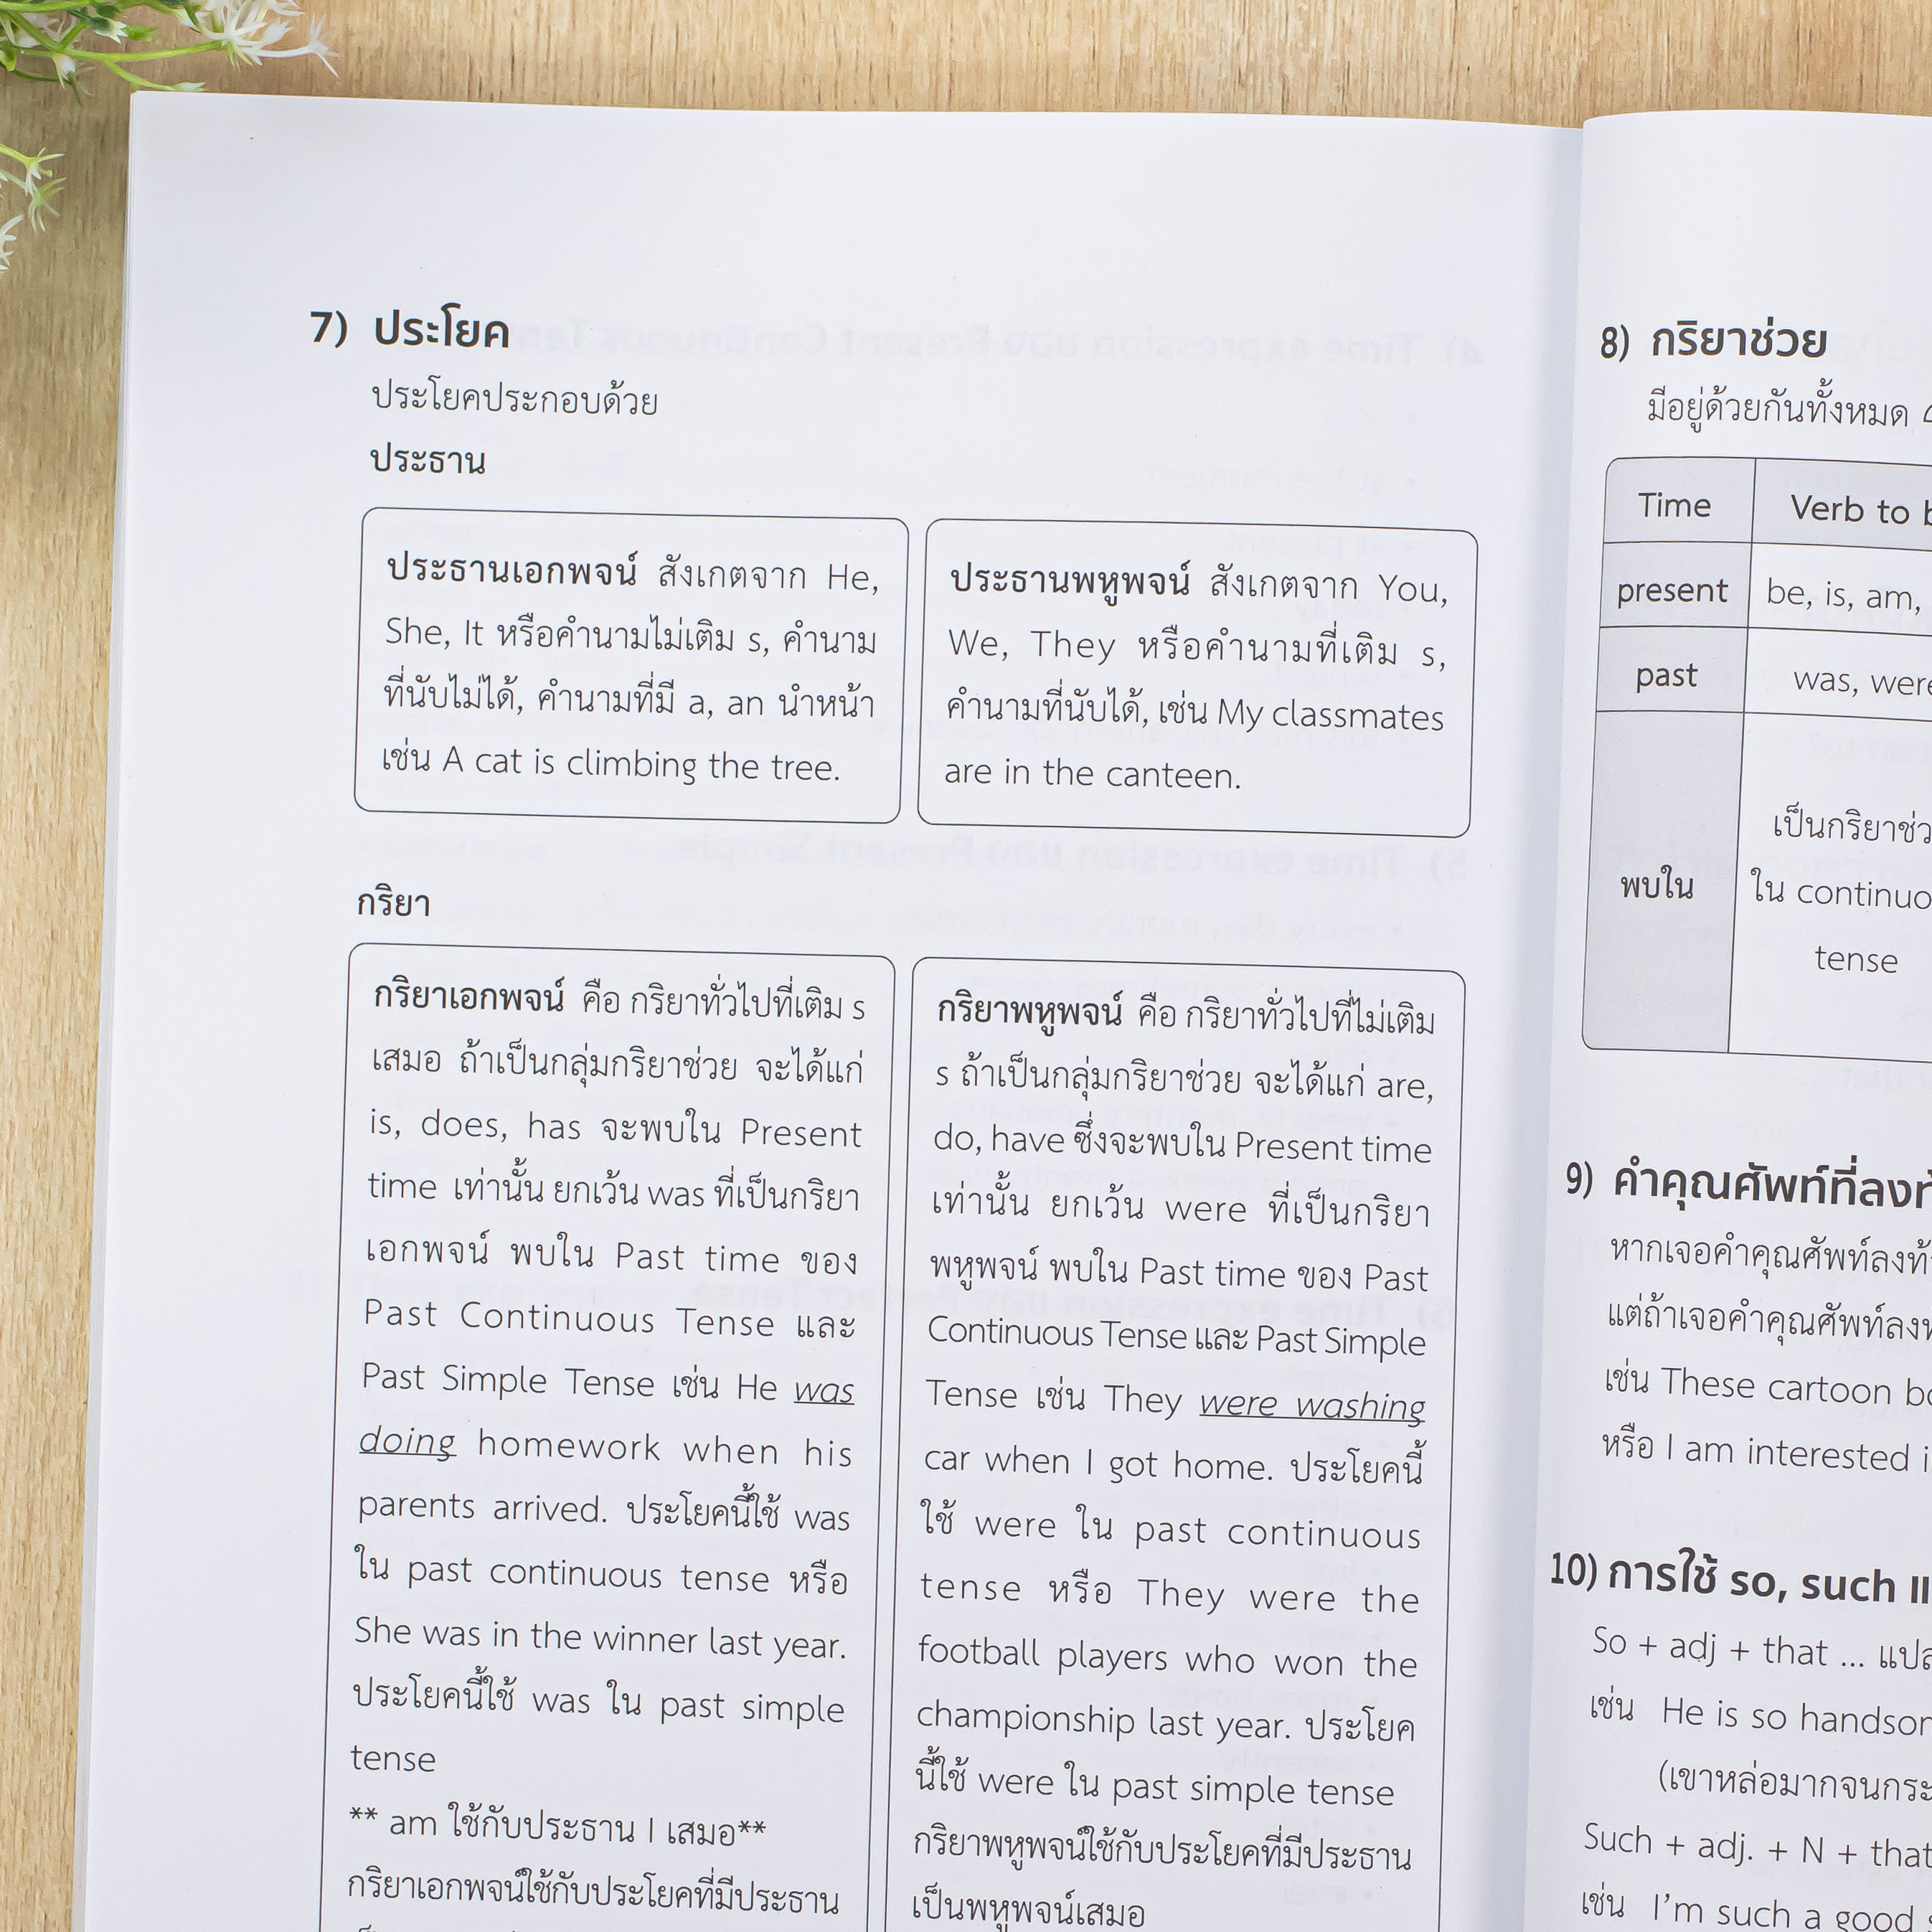 7) ประโยค
ประโยคประกอบด้วย
ประธาน
ประธานเอกพจน์ สังเกตจาก He,
She, It หรือคำนามไม่เติม s, คำนาม
ที่นับไม่ได้, คำนามที่มี a, an นำหน้า
เช่น A cat is climbing the tree.
ประธานพหูพจน์ สังเกตจาก You,
We, They หรือคำนามที่เติม s,
คำนามที่นับได้, เช่น My classmates
are in the canteen.
กริยา
กริยาเอกพจน์ คือ กริยาทั่วไปที่เติม s
เสมอ ถ้าเป็นกลุ่มกริยาช่วย จะได้แก่
is, does, has จะพบใน Present
time เท่านั้น ยกเว้น was ที่เป็นกริยา
เอกพจน์ พบใน Past time ของ
Past Continuous Tense และ
Past Simple Tense เช่น He was
doing homework when his
parents arrived. ประโยคนี้ใช้ was
ใน past continuous tense หรือ
She was in the winner last year.
ประโยคนี้ใช้ was ใน past simple
tense
** am ใช้กับประธาน I เสมอ**
กริยาเอกพจน์ใช้กับประโยคที่มีประธาน
กริยาพหูพจน์ คือ กริยาทั่วไปที่ไม่เติม
s ถ้าเป็นกลุ่มกริยาช่วย จะได้แก่ are,
do, have ซึ่งจะพบใน Present time
เท่านั้น ยกเว้น were ที่เป็นกริยา
พหูพจน์ พบใน Past time ของ Past
Continuous Tense และ Past Simple
Tense เช่น They were washing
car when I got home. ประโยคนี้
ใช้ were ใน past continuous
tense หรือ They were the
football players who won the
championship last year. ประโยค
นี้ใช้ were ใน past simple tense
กริยาพหูพจน์ใช้กับประโยคที่มีประธาน
เป็นพหูพจน์เสมอ
8) กริยาช่วย
มีอยู่ด้วยกันทั้งหมด
Time Verb to
present be, is, am,
past was, were
พบใน
เป็นกริยาช่ว
ใน continuo
tense
9) คำคุณศัพท์ที่ลงท้
หากเจอคำคุณศัพท์ลงท้
แต่ถ้าเจอคำคุณศัพท์ลงท
เช่น These cartoon bo
หรือ I am interested i
10) การใช้ so, such แ
So + adj + that ... แปล
เช่น He is so handsom
(เขาหล่อมากจนกระ
Such + adj. + N + that
เช่น I'm such a good